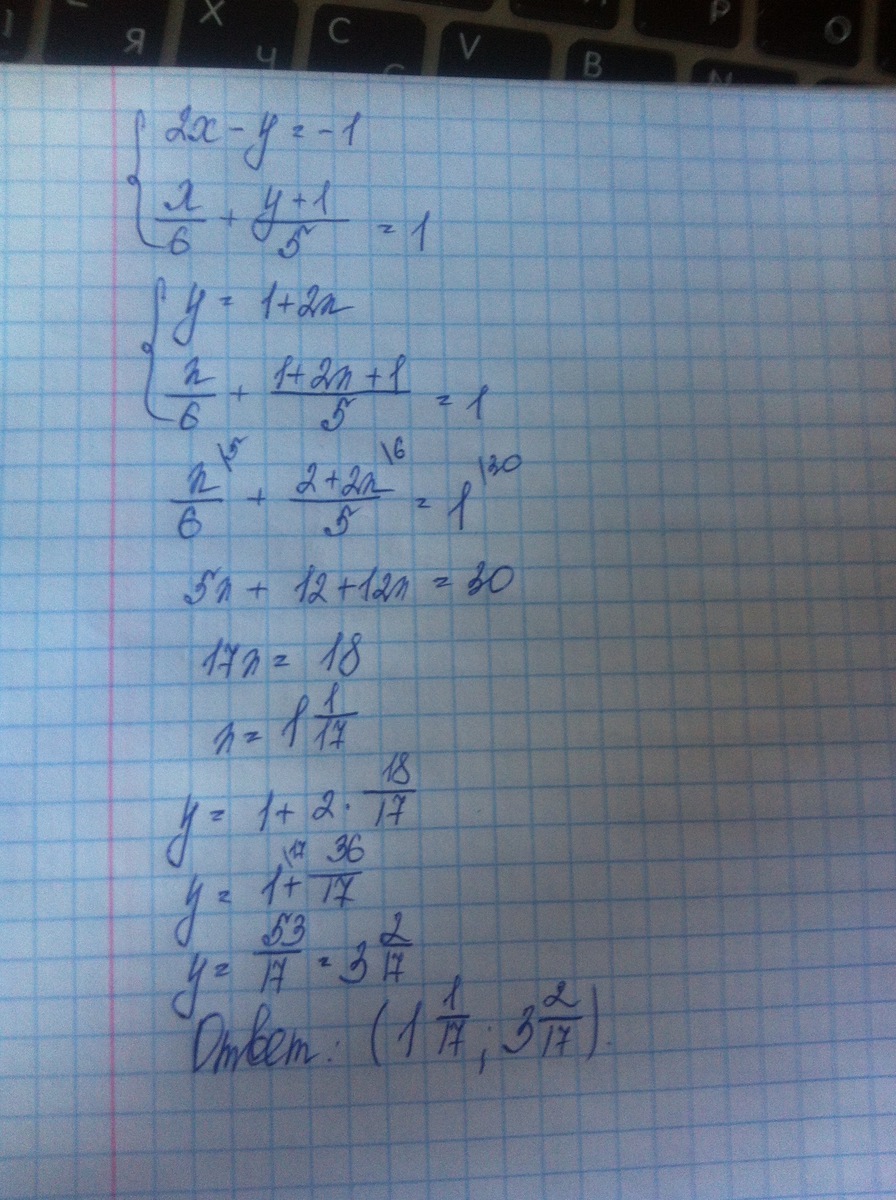 Я Х Ч С V В Р О
{ 2x - y = -1
x/6 + (y+1)/5 = 1
{ y = 1+2x
x/6 + (1+2x+1)/5 = 1
x/6 \5 + (2+2x)/5 \6 = 1 \30
5x + 12 + 12x = 30
17x = 18
x = 1 1/17
y = 1 + 2 · 18/17
y = 1 \17 + 36/17
y = 53/17 = 3 2/17
Ответ: (1 1/17; 3 2/17).